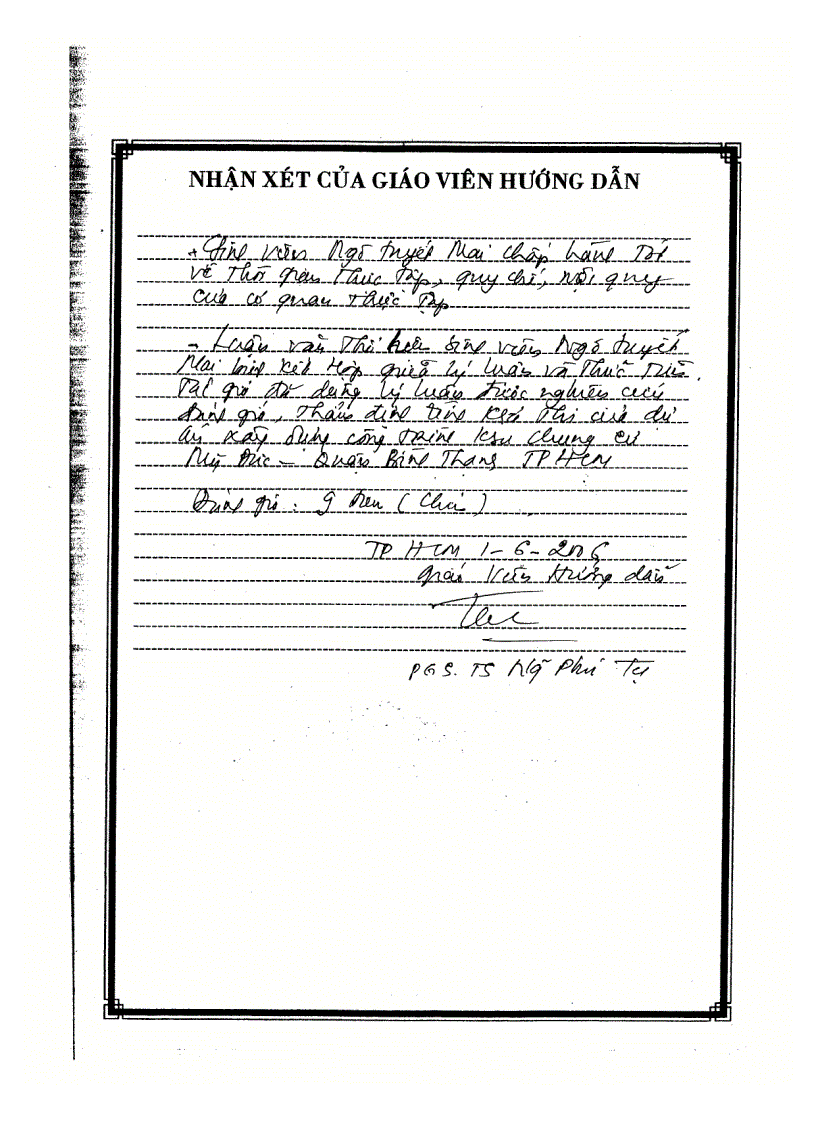 NHẬN XÉT CỦA GIÁO VIÊN HƯỚNG DẪN
+ Sinh viên Ngô Tuyết Mai chấp hành Tốt
về Thời gian Thực Tập, quy chế, nội quy
của cơ quan Thực Tập
- Luận văn Thể hiện sinh viên Ngô Tuyết
Mai kết Hợp giữa lý luận và Thực Tiễn.
Tác giả đã dùng lý luận được nghiên cứu
đánh giá, Thẩm định tính Khả Thi của dự
án xây dựng công trình khu chung cư
Mỹ Đức - Quận Bình Thạnh TP HCM
Đánh giá : 9 điểm ( Chín )
TP HCM 1-6-2006
Giáo Viên Hướng dẫn
PGS. TS Ng~ Phú Tụ